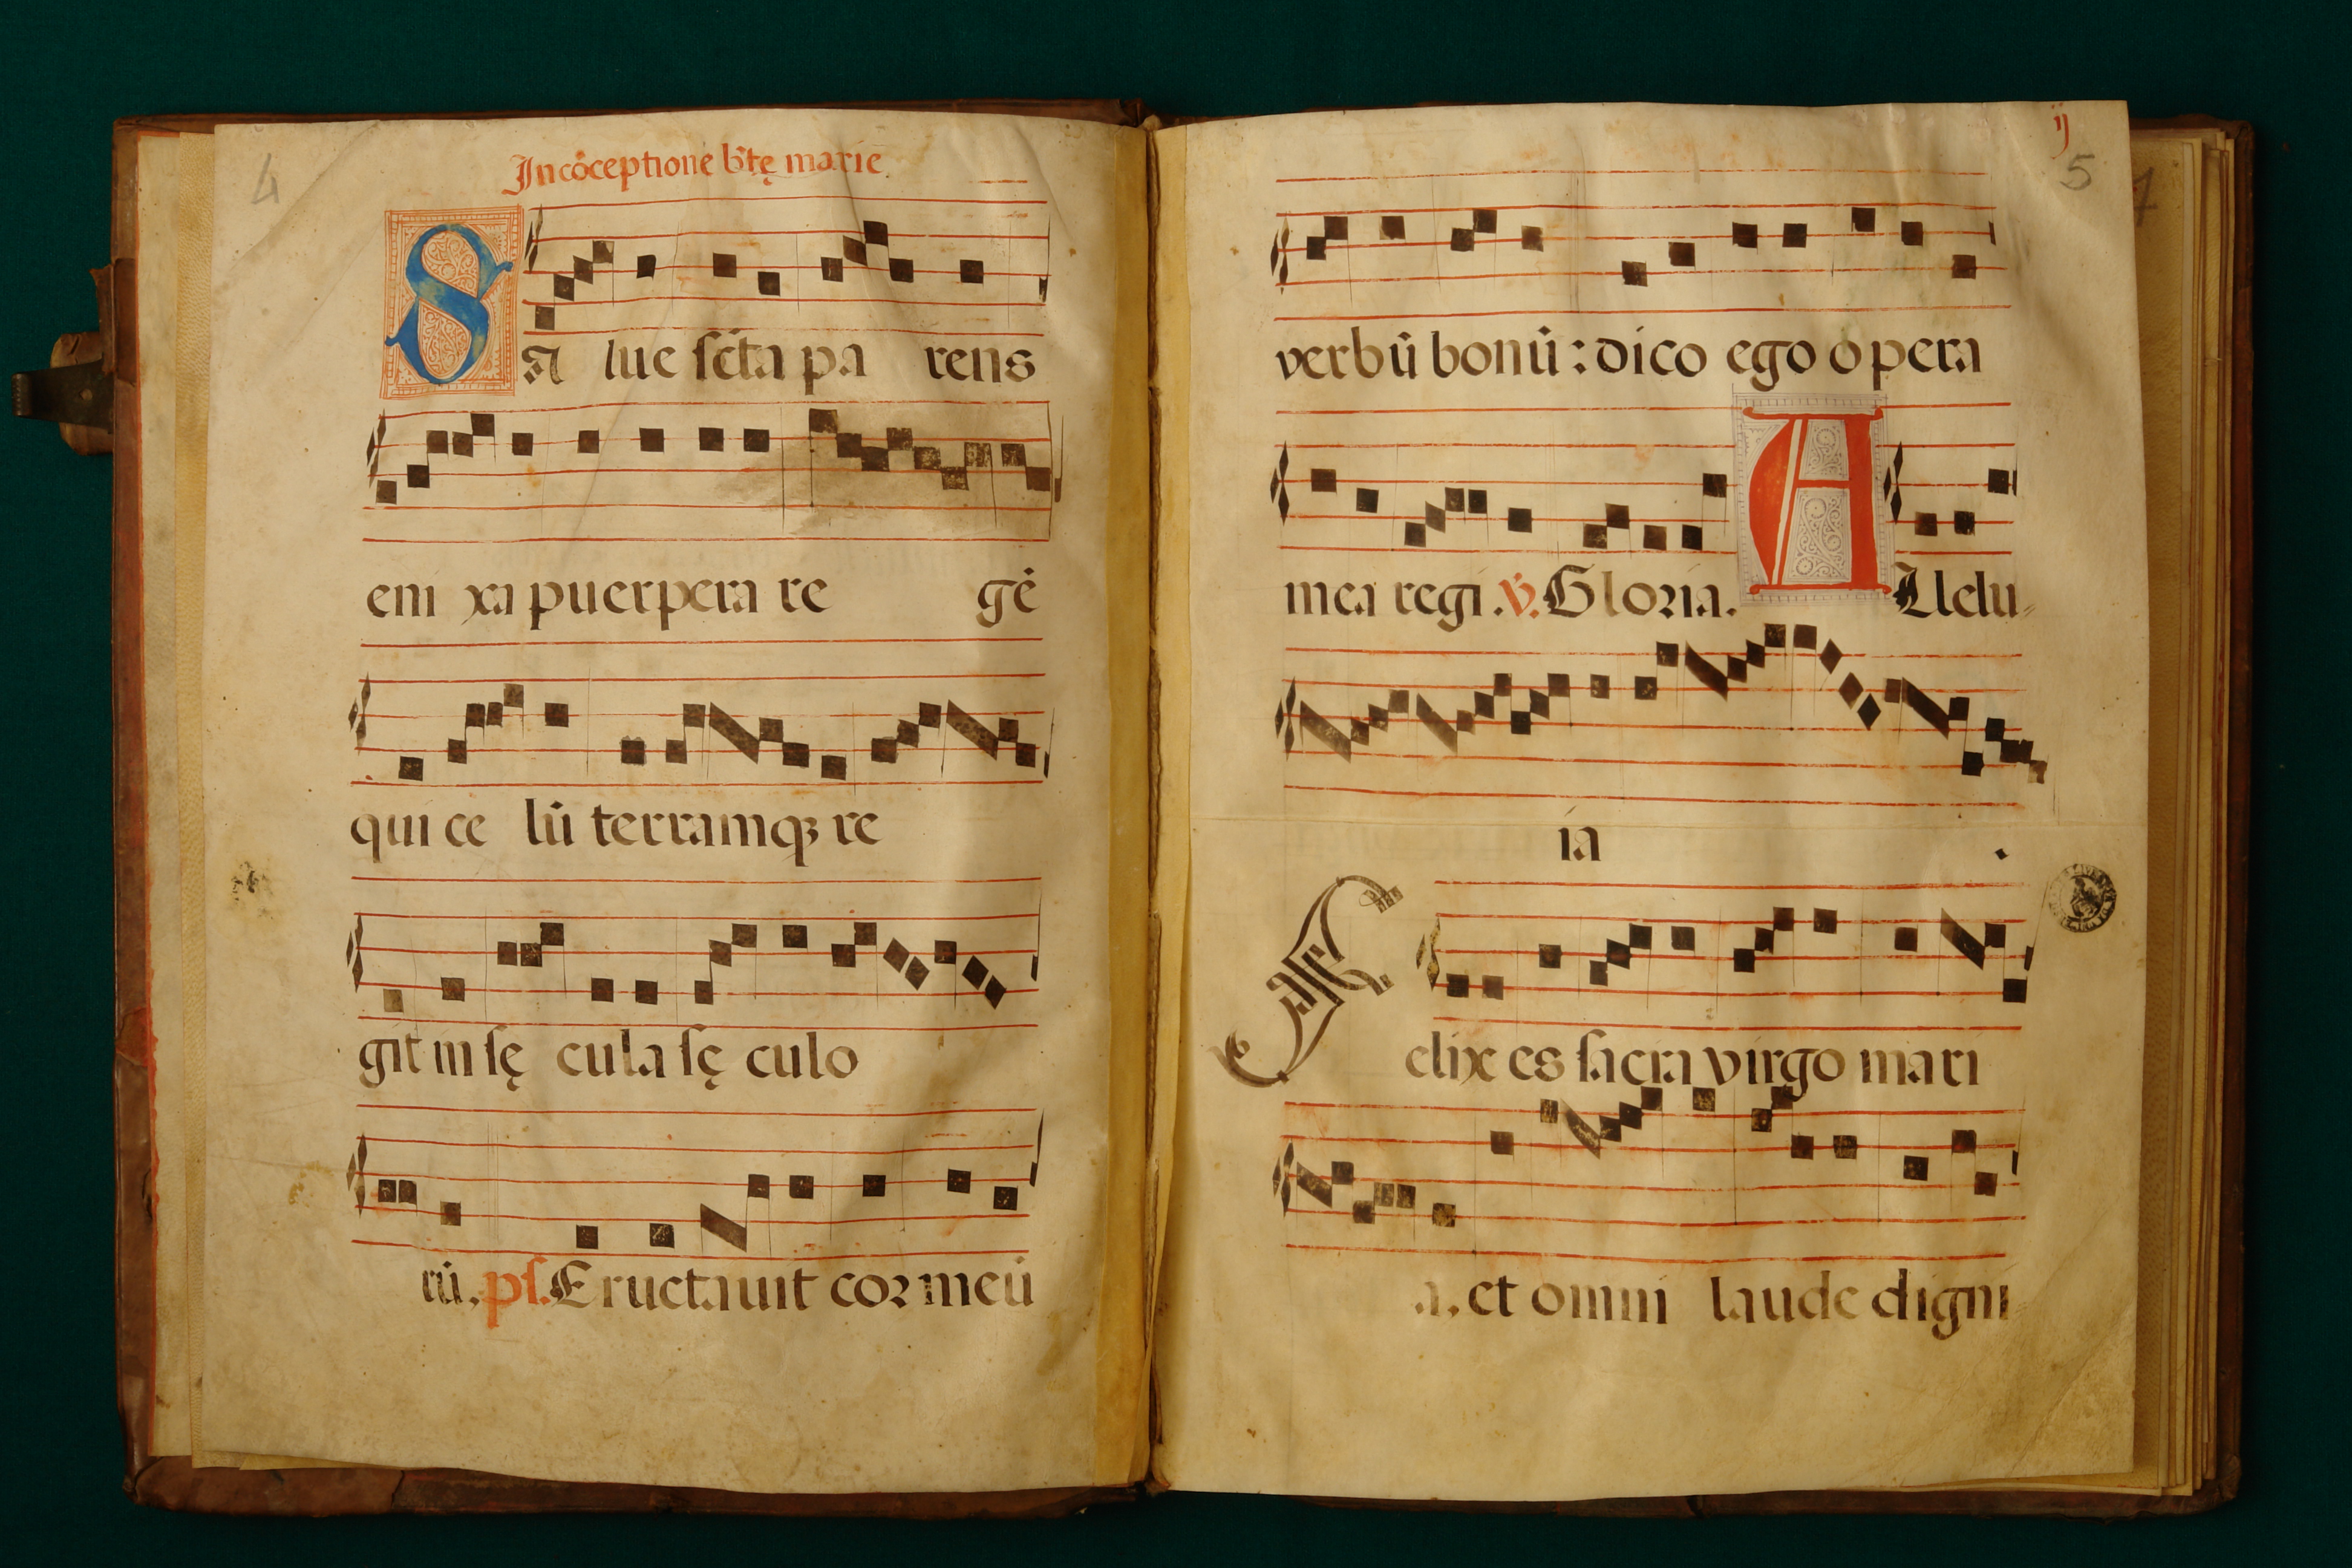 4
In cōceptione bt̄ę marie
SA lue sc̄ta pa rens
eni xa puerpera re gē
qui ce lū terramqȝ re
git in sę cula sę culo
rū. ps. Eructauit cor meū
ij
5
verbū bonū: dico ego opera
mea regi. v̄. Gloria. ALlelu
ia .
Felix es sacra virgo mari
a. et omni laude digni